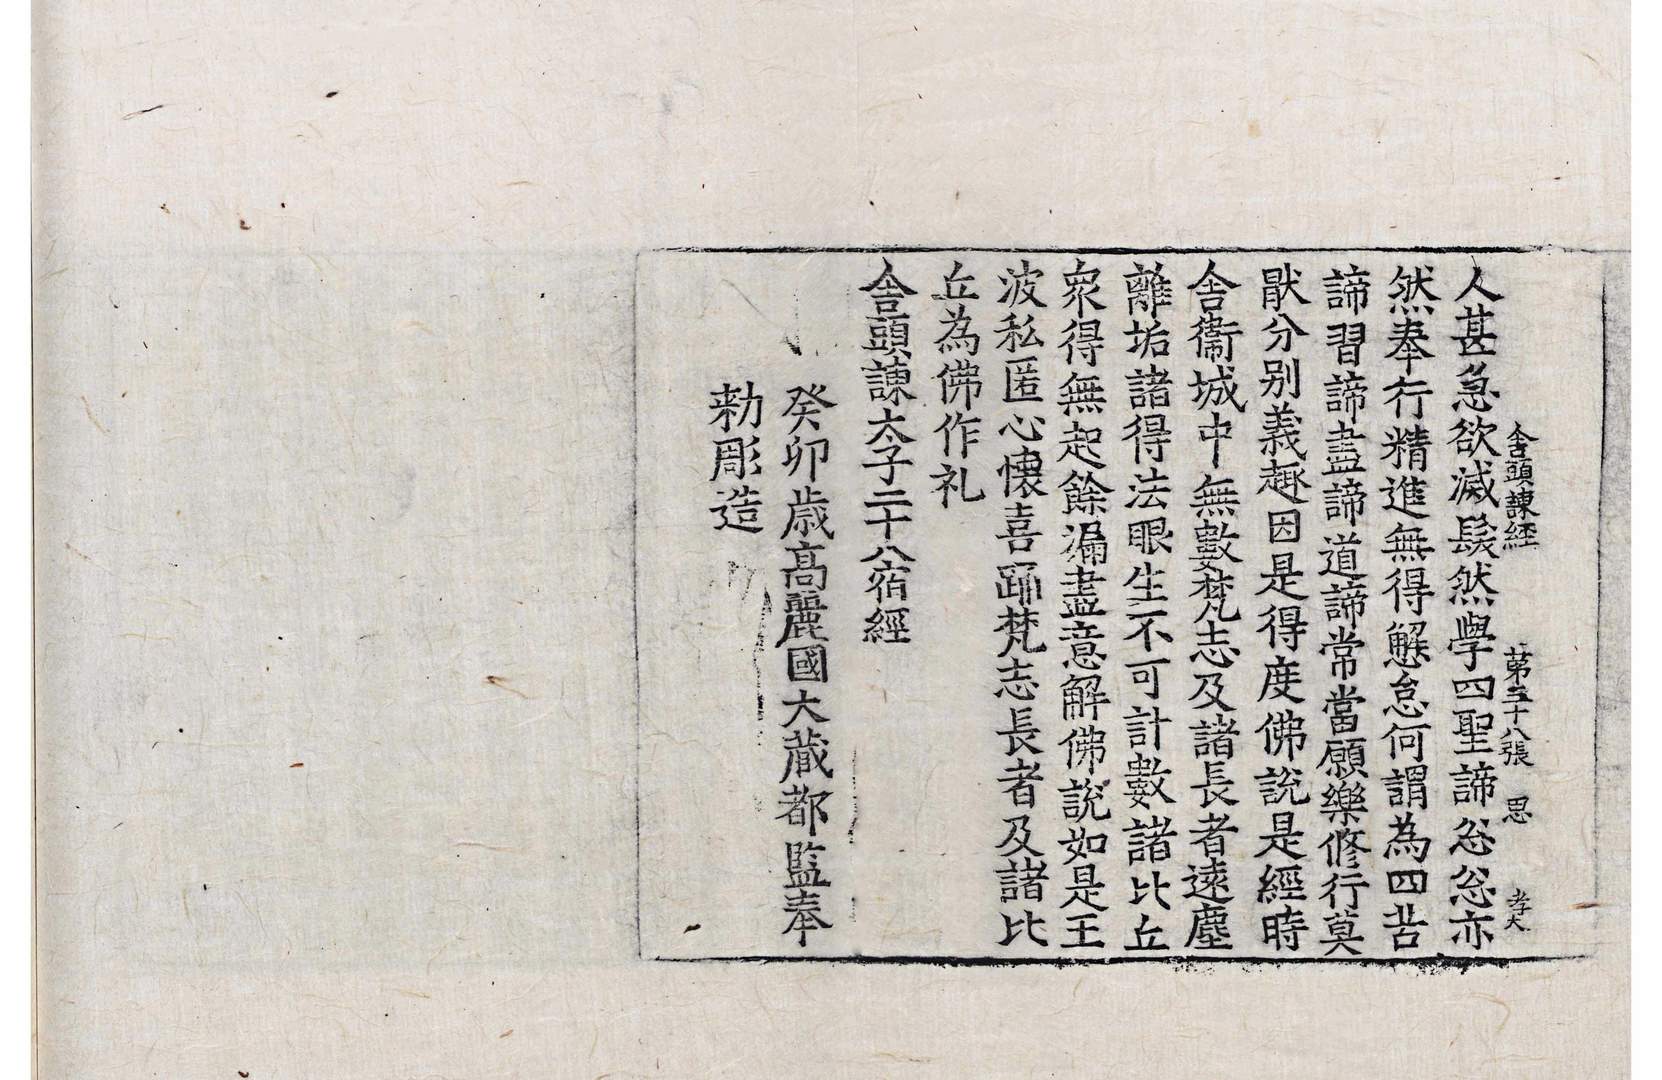 舍頭諫經 第三十八張 思 孝大
人甚急欲滅髮然學四聖諦忩忩亦
然奉行精進無得懈怠何謂為四苦
諦習諦盡諦道諦常當願樂修行莫
猒分別義趣因是得度佛說是經時
舍衞城中無數梵志及諸長者遠塵
離垢諸得法眼生不可計數諸比丘
衆得無起餘漏盡意解佛說如是王
波私匿心懷喜踊梵志長者及諸比
丘為佛作礼
舍頭諫太子二十八宿經
癸卯歲高麗國大藏都監奉
勑彫造